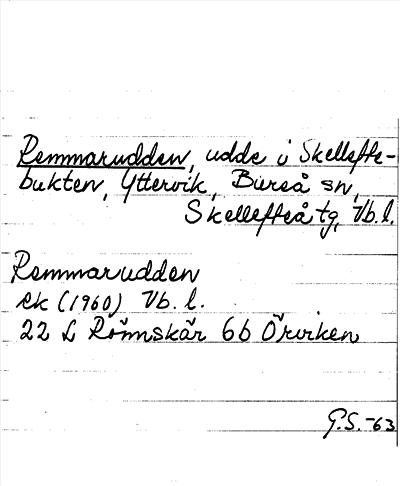 Remmarudden, udde i Skellefte-
bukten, Yttervik, Bureå sn,
Skellefteå tg, Vb.l.
Remmarudden
ek (1960) Vb. l.
22 L Rönnskär 6b Örviken
G.S.-63